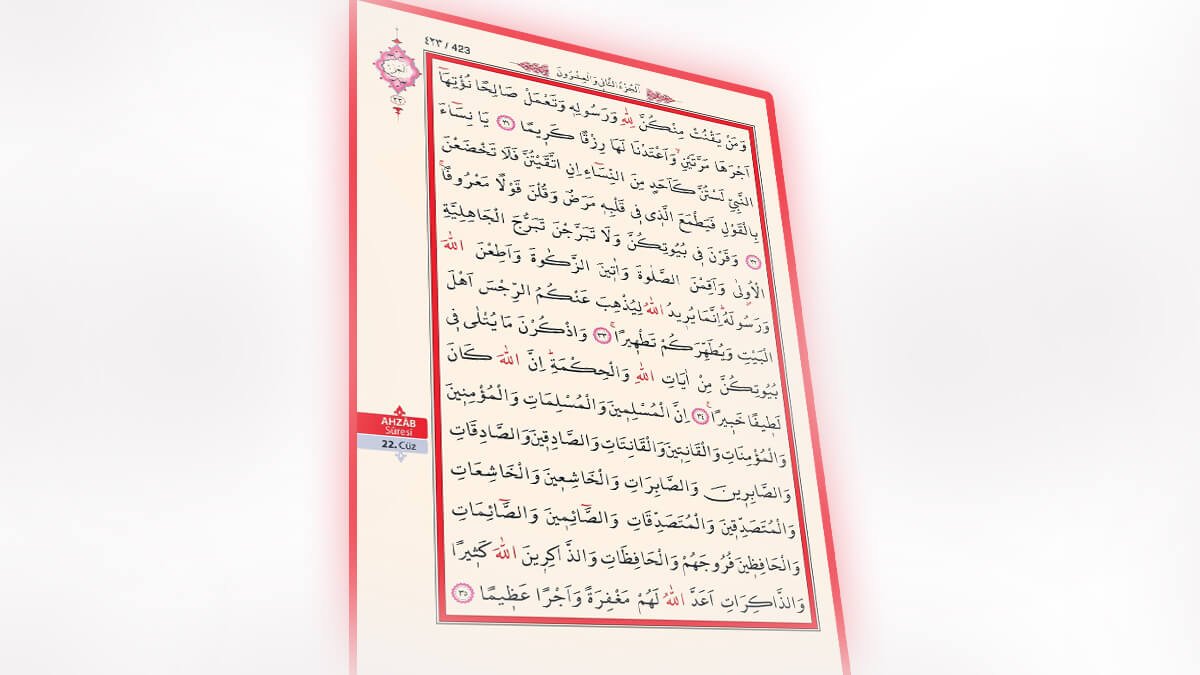 ٤٢٣ / 423
اَلْجُزْءُ الثَّانِي وَالْعِشْرُونَ
وَمَنْ يَقْنُتْ مِنْكُنَّ لِلّٰهِ وَرَسُولِهٖ وَتَعْمَلْ صَالِحًا نُؤْتِهَٓا
اَجْرَهَا مَرَّتَيْنِۙ وَاَعْتَدْنَا لَهَا رِزْقًا كَرٖيمًا ﴿٣١﴾ يَا نِسَٓاءَ
النَّبِيِّ لَسْتُنَّ كَاَحَدٍ مِنَ النِّسَٓاءِ اِنِ اتَّقَيْتُنَّ فَلَا تَخْضَعْنَ
بِالْقَوْلِ فَيَطْمَعَ الَّذٖى فٖى قَلْبِهٖ مَرَضٌ وَقُلْنَ قَوْلًا مَعْرُوفًاۚ
﴿٣٢﴾ وَقَرْنَ فٖى بُيُوتِكُنَّ وَلَا تَبَرَّجْنَ تَبَرُّجَ الْجَاهِلِيَّةِ
الْاُو۫لٰى وَاَقِمْنَ الصَّلٰوةَ وَاٰتٖينَ الزَّكٰوةَ وَاَطِعْنَ اللّٰهَ
وَرَسُولَهُؕ اِنَّمَا يُرٖيدُ اللّٰهُ لِيُذْهِبَ عَنْكُمُ الرِّجْسَ اَهْلَ
الْبَيْتِ وَيُطَهِّرَكُمْ تَطْهٖيرًاۚ ﴿٣٣﴾ وَاذْكُرْنَ مَا يُتْلٰى فٖى
بُيُوتِكُنَّ مِنْ اٰيَاتِ اللّٰهِ وَالْحِكْمَةِؕ اِنَّ اللّٰهَ كَانَ
لَطٖيفًا خَبٖيرًاۚ ﴿٣٤﴾ اِنَّ الْمُسْلِمٖينَ وَالْمُسْلِمَاتِ وَالْمُؤْمِنٖينَ
وَالْمُؤْمِنَاتِ وَالْقَانِتٖينَ وَالْقَانِتَاتِ وَالصَّادِقٖينَ وَالصَّادِقَاتِ
وَالصَّابِرٖينَ وَالصَّابِرَاتِ وَالْخَاشِعٖينَ وَالْخَاشِعَاتِ
وَالْمُتَصَدِّقٖينَ وَالْمُتَصَدِّقَاتِ وَالصَّٓائِمٖينَ وَالصَّٓائِمَاتِ
وَالْحَافِظٖينَ فُرُوجَهُمْ وَالْحَافِظَاتِ وَالذَّاكِرٖينَ اللّٰهَ كَثٖيرًا
وَالذَّاكِرَاتِ اَعَدَّ اللّٰهُ لَهُمْ مَغْفِرَةً وَاَجْرًا عَظٖيمًا ﴿٣٥﴾
AHZÂB
Sûresi
22. Cüz